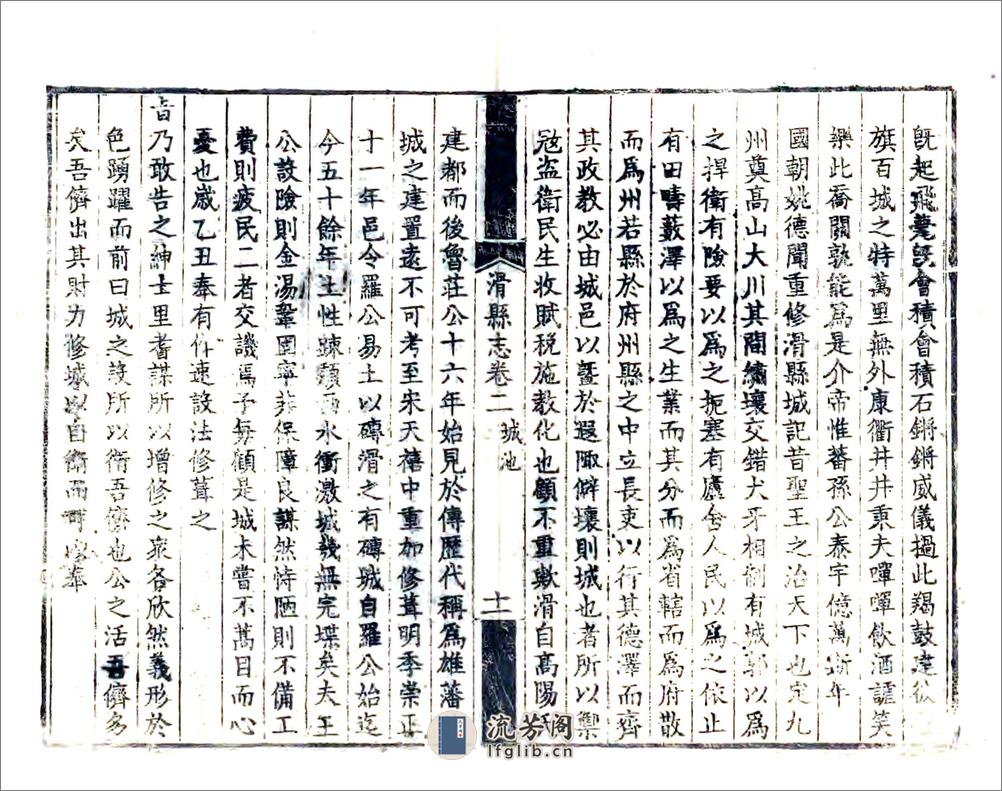 既起飛甍既會積會積石鏘鏘威儀搵此羯鼓逢逢
旗百城之特萬里無外康衢井井秉夫暉暉飲酒讙笑
樂此喬關孰能為是介帝惟蕃孫公泰宇億萬斯年
國朝姚德聞重修滑縣城記昔聖王之治天下也定九
州奠髙山大川其間繡壤交錯犬牙相制有城郭以為
之捍衛有險要以為之扼塞有廬舍人民以為之依止
有田疇藪澤以為之生業而其分而為省轄而為府散
而爲州若縣於府州縣之中立長吏以行其德澤而齊
其政教必由城邑以曁於遐陬僻壤則城也者所以禦
冦盗衛民生收賦税施教化也顧不重歟滑自髙陽
滑縣志卷二 城池 十一
建都而後魯莊公十六年始見於傳歷代稱爲雄藩
城之建置遠不可考至宋天禧中重加修葺明季崇正
十一年邑令羅公易土以磚滑之有磚城自羅公始迄
今五十餘年土性踈頽雨水衝激城幾無完堞矣夫王
公設險則金湯鞏固寧非保障良謀然恃陋則不備工
費則疲民二者交譏焉予每顧是城未嘗不蒿目而心
憂也歲乙丑奉有作速設法修葺之
旨乃敢告之紳士里耆謀所以增修之衆各欣然義形於
色踴躍而前曰城之設所以衛吾儕也公之活吾儕多
矣吾儕出其財力修城以自衛而可以奉
流芳阁
lfglib.cn